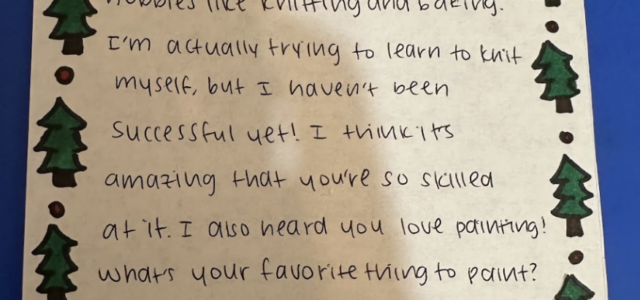 hobbies like knitting and baking.
I'm actually trying to learn to knit
myself, but I haven't been
successful yet! I think its
amazing that you're so skilled
at it. I also heard you love painting!
what's your favorite thing to paint?